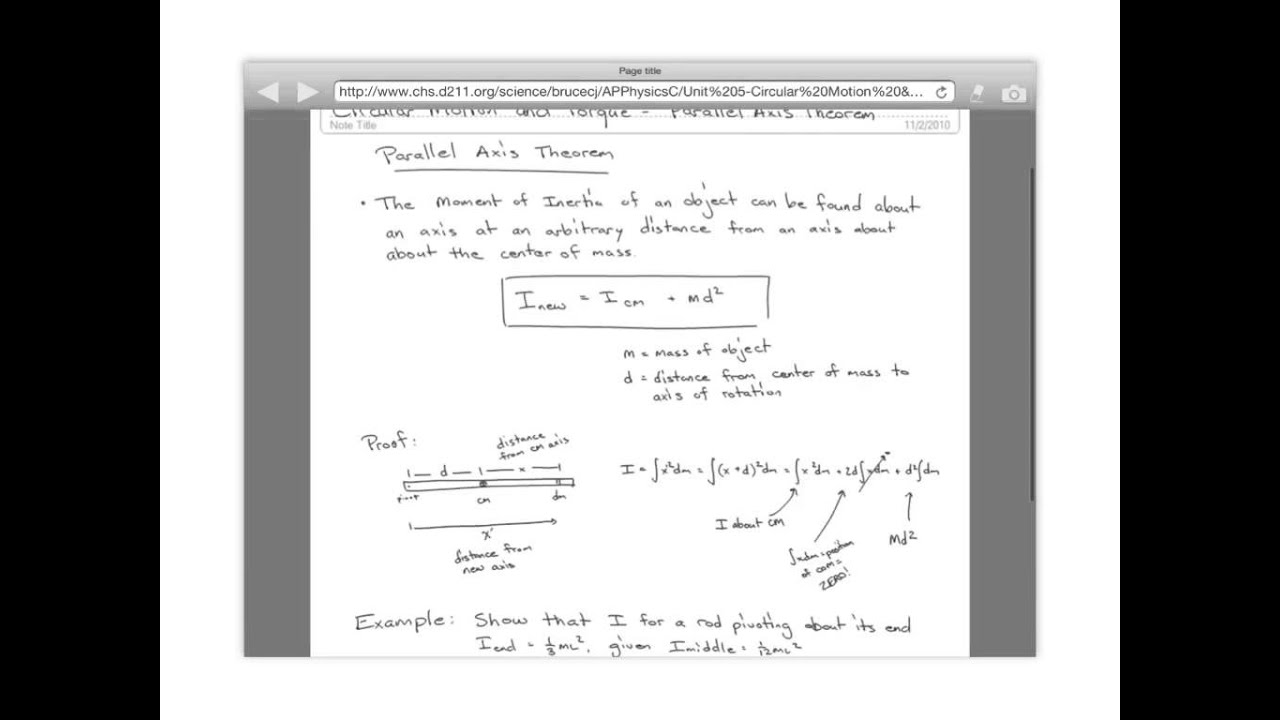 Page title
http://www.chs.d211.org/science/brucecj/APPhysicsC/Unit%205-Circular%20Motion%20&...
Circular Motion and Torque - Parallel Axis Theorem
Note Title
11/2/2010
Parallel Axis Theorem
• The Moment of Inertia of an object can be found about
an axis at an arbitrary distance from an axis about
about the center of mass.
I new = I cm + md²
m = mass of object
d = distance from center of mass to
axis of rotation
Proof:
distance
from cm axis
d x
pivot cm dm
x'
distance from
new axis
I = ∫x²dm = ∫(x+d)²dm = ∫x²dm + 2d∫xdm + d²∫dm
I about cm
∫xdm = position
of com =
ZERO!
Md²
Example: Show that I for a rod pivoting about its end
I end = ⅓mL², given Imiddle = 1/12 mL²